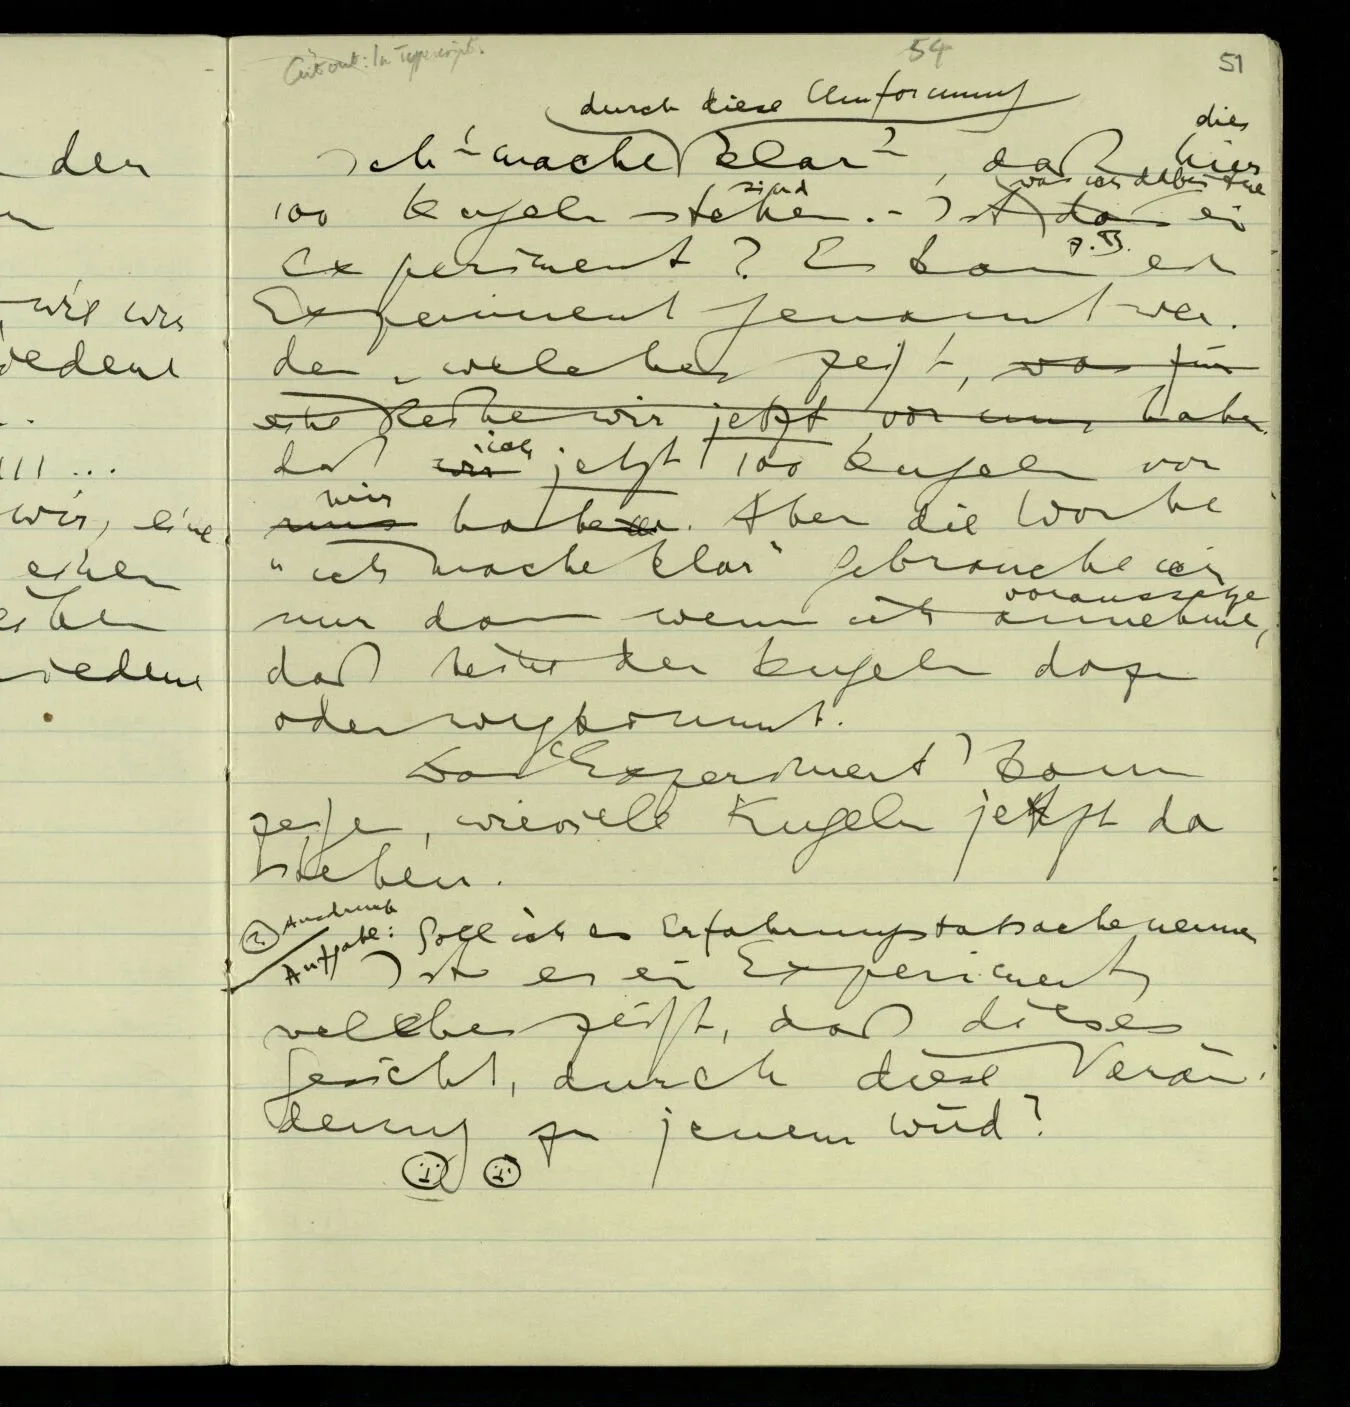 der
wie wir
111 ...
wir, eine
einen
Cut out: In Typescript.
54
51
durch diese Umformung
dies
Ich "mache klar", daß hier
sind
was ich dabei tue
100 Kugeln stehen. – Ist das ein
z.B.
Experiment? Es kann ein
Experiment genannt wer-
den, welches zeigt, was für
eine Reihe wir jetzt vor uns haben
ich
daß wir jetzt 100 Kugeln vor
mir
uns haben. Aber die Worte
"ich mache klar" gebrauche ich
voraussetze
nur dann wenn ich annehme,
daß keine der Kugeln dazu
oder wegkommt.
Das 'Experiment' kann
zeigen, wieviele Kugeln jetzt da
stehen.
Ausdruck
Aufgabe: Soll ich es Erfahrungstatsache nennen
Ist es ein Experiment,
welches zeigt, daß dieses
Gesicht, durch diese Verän-
derung zu jenem wird?